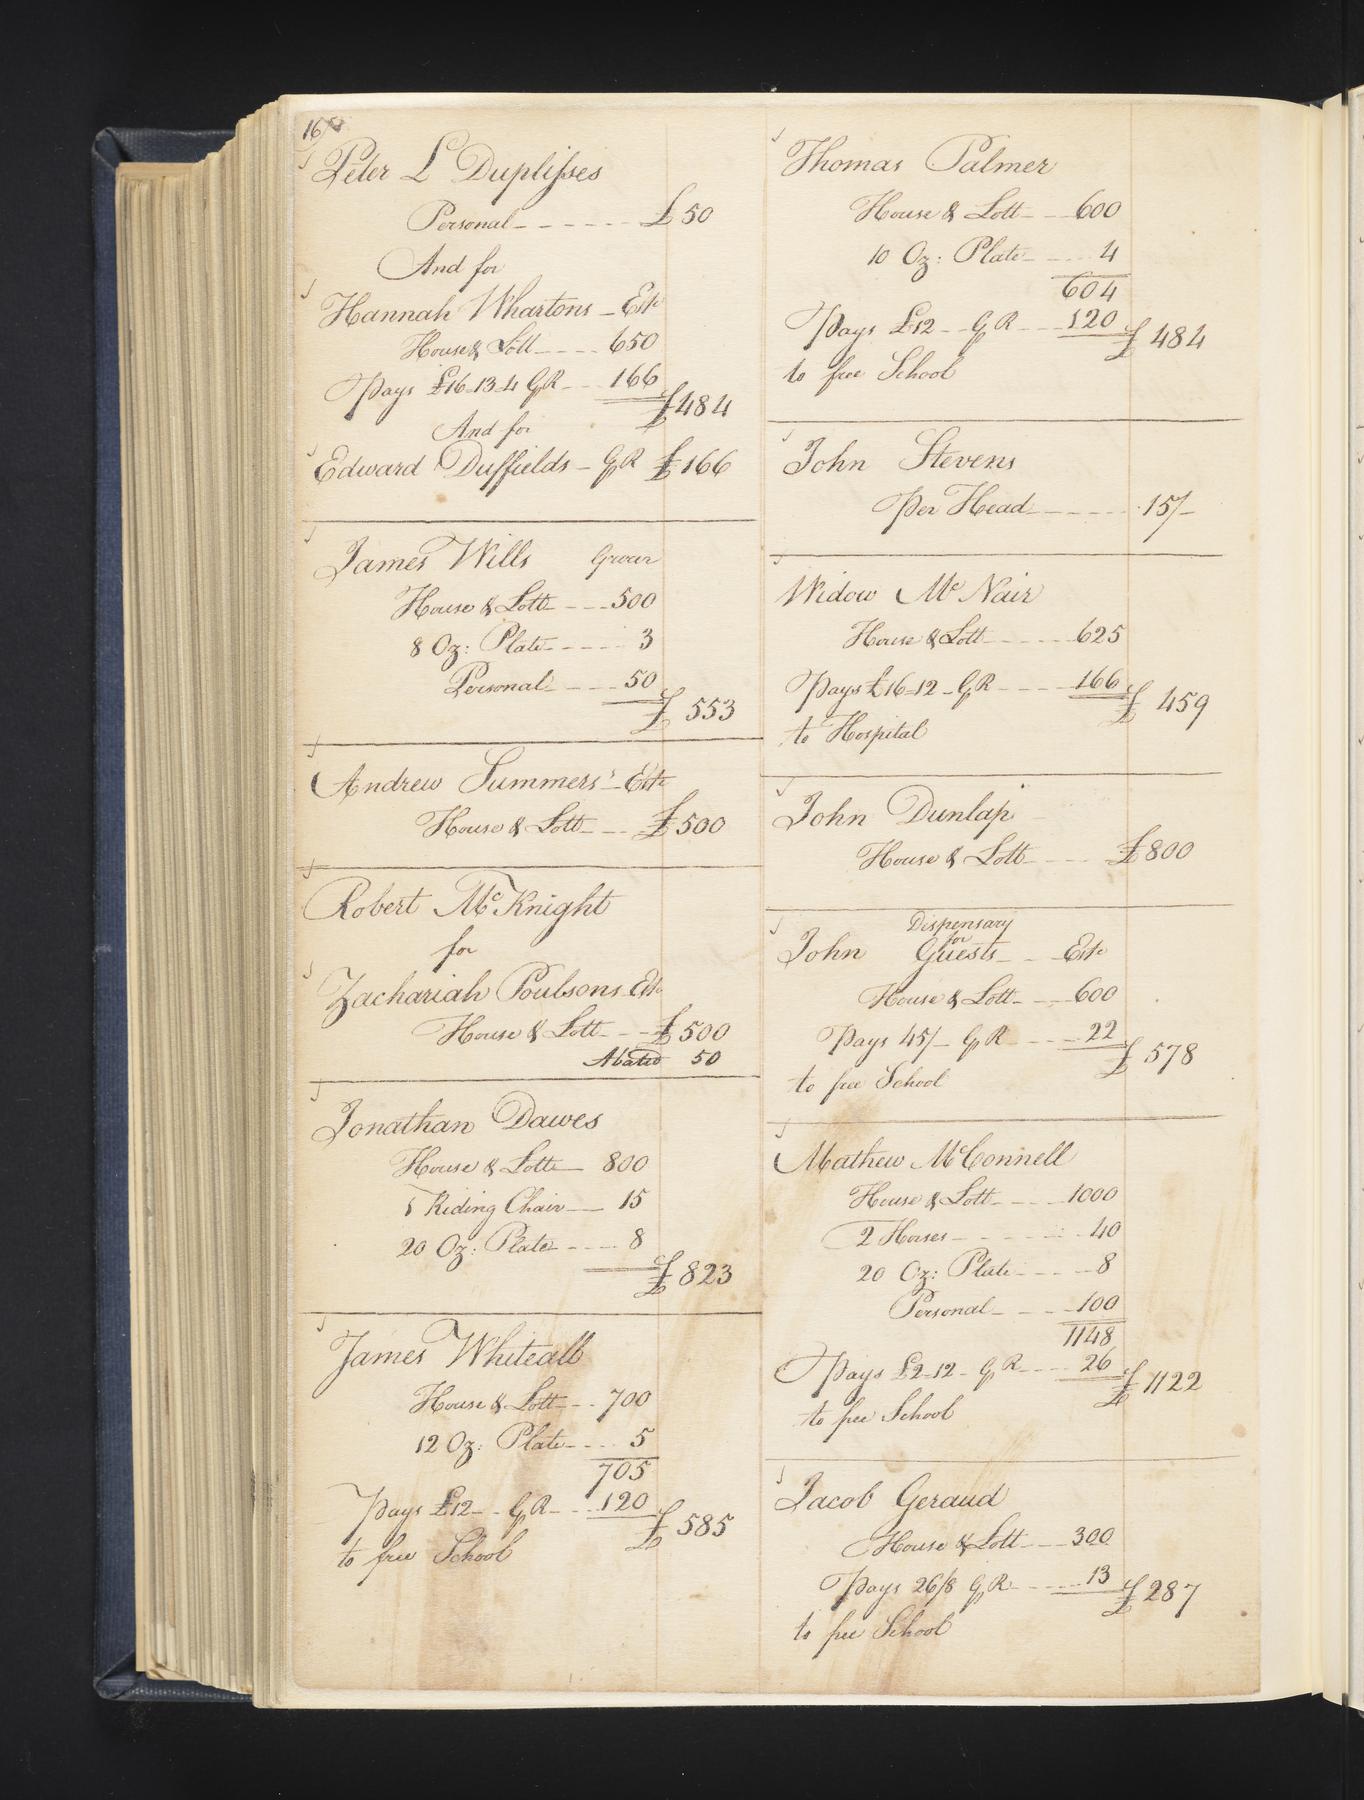 16
Peter L Duplisses
Personal - - - - - £ 50
And for
Hannah Whartons - Este
House & Lott - - - - 650
Pays £16-13-4 GR - - 166
£484
And for
Edward Duffields - GR £166
James Wills Grocer
House & Lott - - - 500
8 Oz: Plate - - - - 3
Personal - - - 50
£ 553
Andrew Summers' - Este
House & Lott - - - £500
Robert McKnight
for
Zachariah Poulsons Este
House & Lott - - £500
Abated 50
Jonathan Dawes
House & Lott - 800
1 Riding Chair - - 15
20 Oz: Plate - - - - 8
£ 823
James Whiteall
House & Lott - - 700
12 Oz: Plate - - - 5
705
Pays £12 - - GR - - 120
£ 585
to free School
Thomas Palmer
House & Lott - - 600
10 Oz: Plate - - - 4
604
Pays £12 - - GR - - - 120
£ 484
to free School
John Stevens
Per Head - - - - - - 15/-
Widow Mc Nair
House & Lott - - - - - 625
Pays £16-12 - GR - - - - 166
£ 459
to Hospital
John Dunlap
House & Lott - - - - £800
Dispensary
for
John Guests - - Este
House & Lott - - - 600
Pays 45/- GR - - - - 22
£ 578
to free School
Mathew McConnell
House & Lott - - - - 1000
2 Horses - - - - - - 40
20 Oz: Plate - - - - 8
Personal - - - - 100
1148
Pays £2-12 - GR - - - 26
£ 1122
to free School
Jacob Geraud
House & Lott - - - 300
Pays 26/8 GR - - - - 13
£ 287
to free School